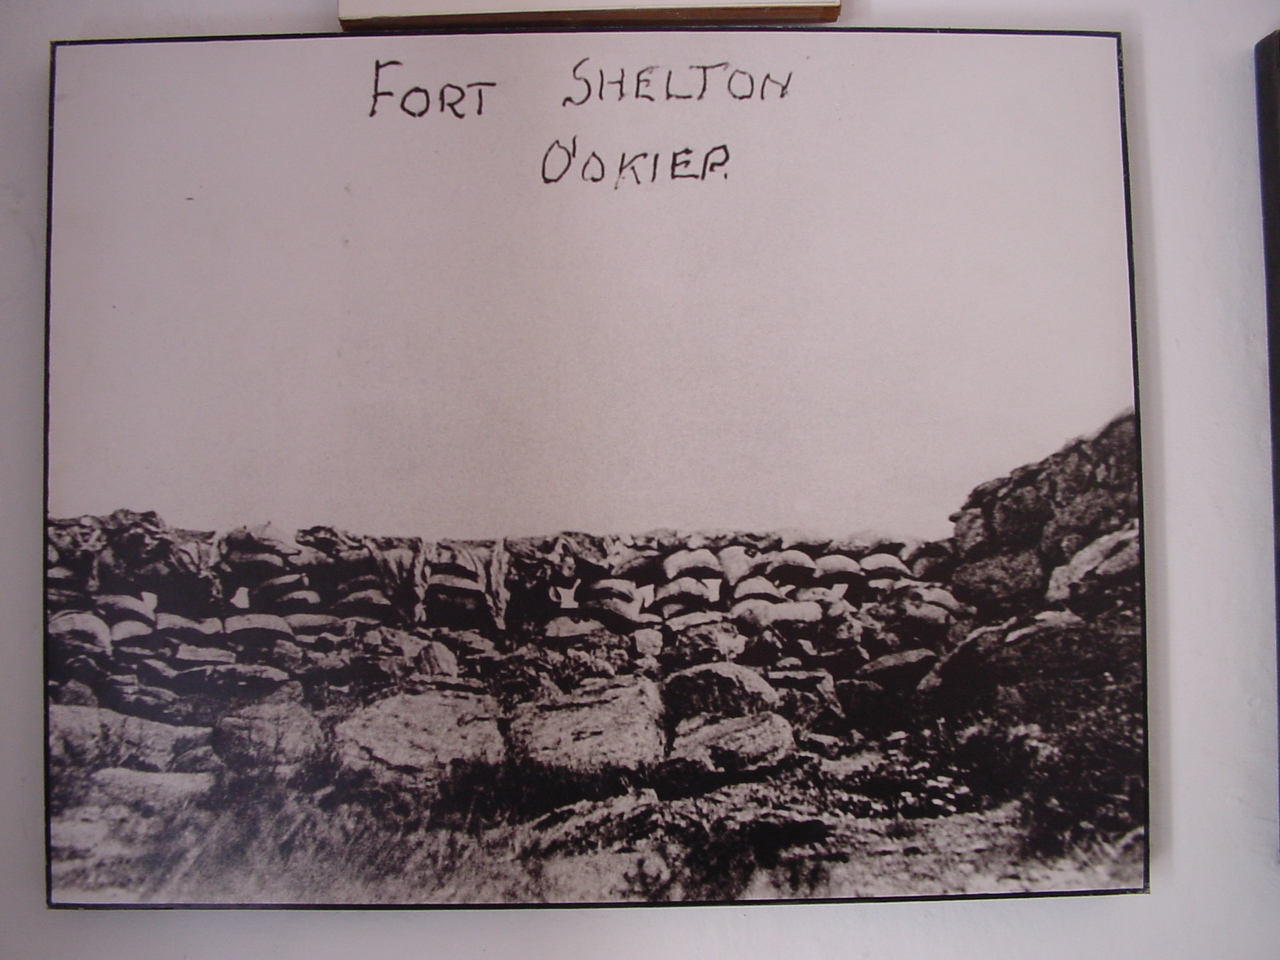 FORT SHELTON
O'OKIEP.